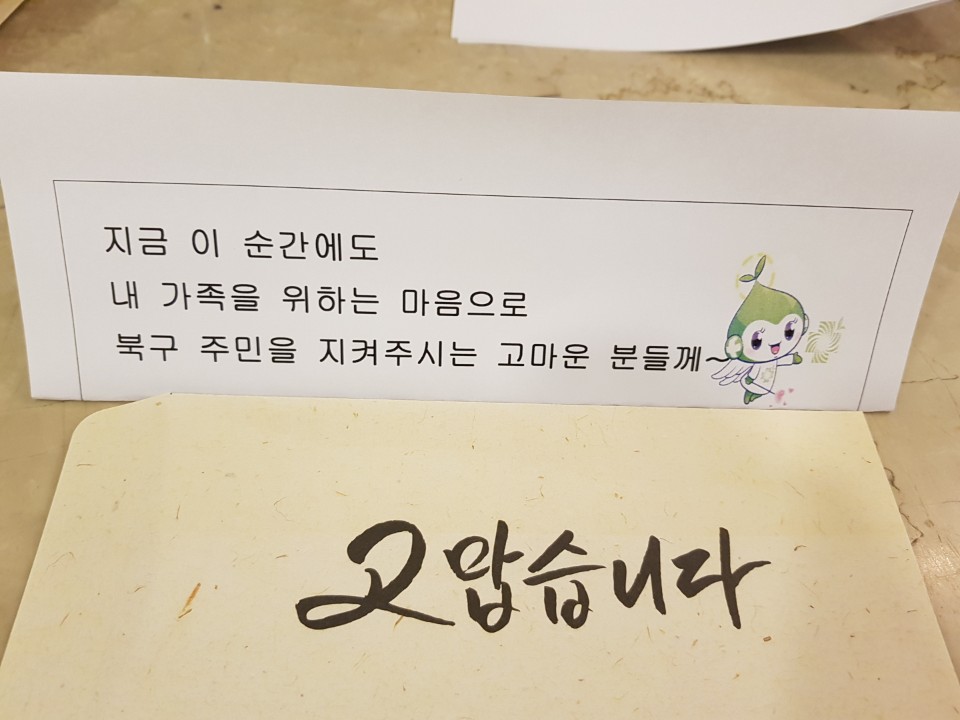 지금 이 순간에도
내 가족을 위하는 마음으로
북구 주민을 지켜주시는 고마운 분들께~
고맙습니다